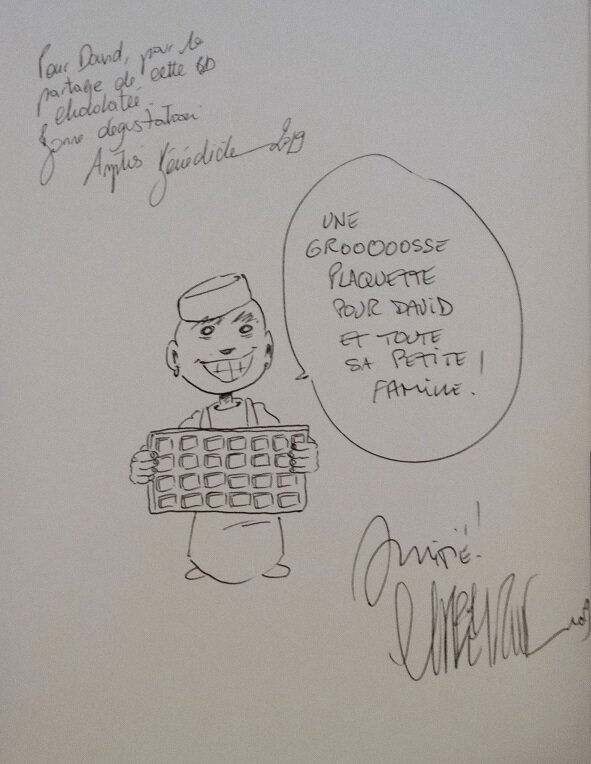 Pour David, pour le
partage de cette BD
chocolatée.
Bonne dégustation
Bénédicte 2019
UNE
GROOOOOSSE
PLAQUETTE
POUR DAVID
ET TOUTE
SA PETITE
FAMILLE.
Amitié!